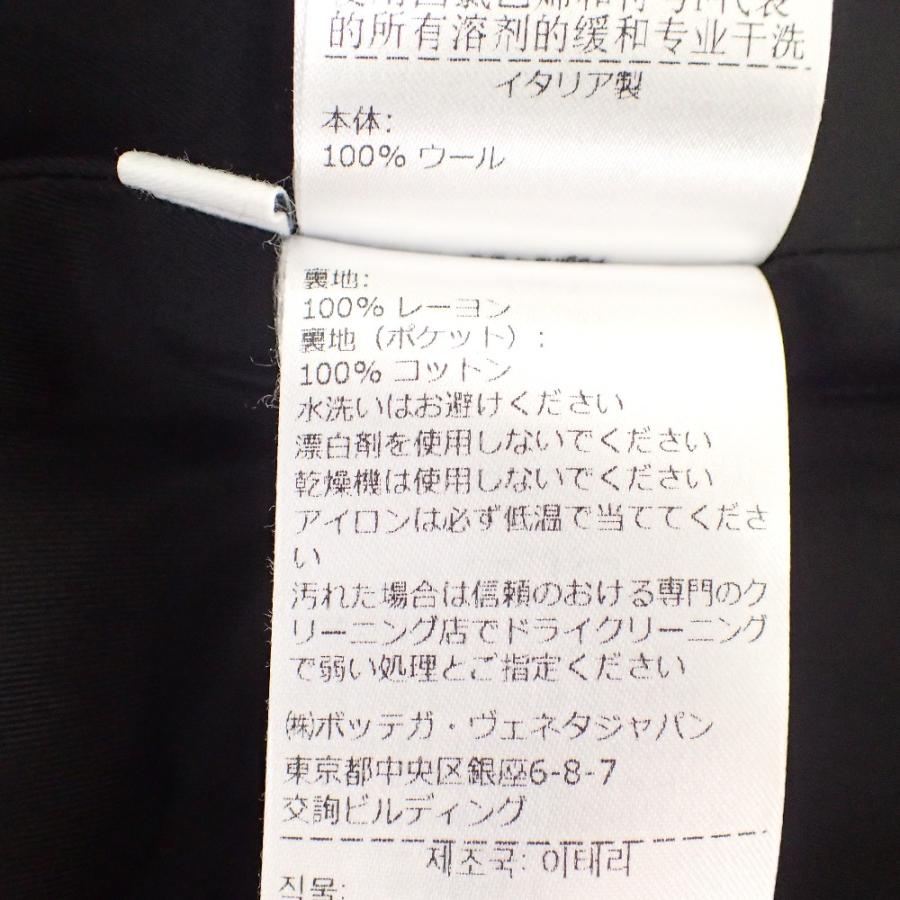 的所有溶剂的缓和专业干洗
イタリア製
本体:
100% ウール
裏地:
100% レーヨン
裏地 (ポケット) :
100% コットン
水洗いはお避けください
漂白剤を使用しないでください
乾燥機は使用しないでください
アイロンは必ず低温で当ててくださ
い
汚れた場合は信頼のおける専門のク
リーニング店でドライクリーニング
で弱い処理とご指定ください
㈱ボッテガ・ヴェネタジャパン
東京都中央区銀座6-8-7
交詢ビルディング
제조국: 이태리
직물: